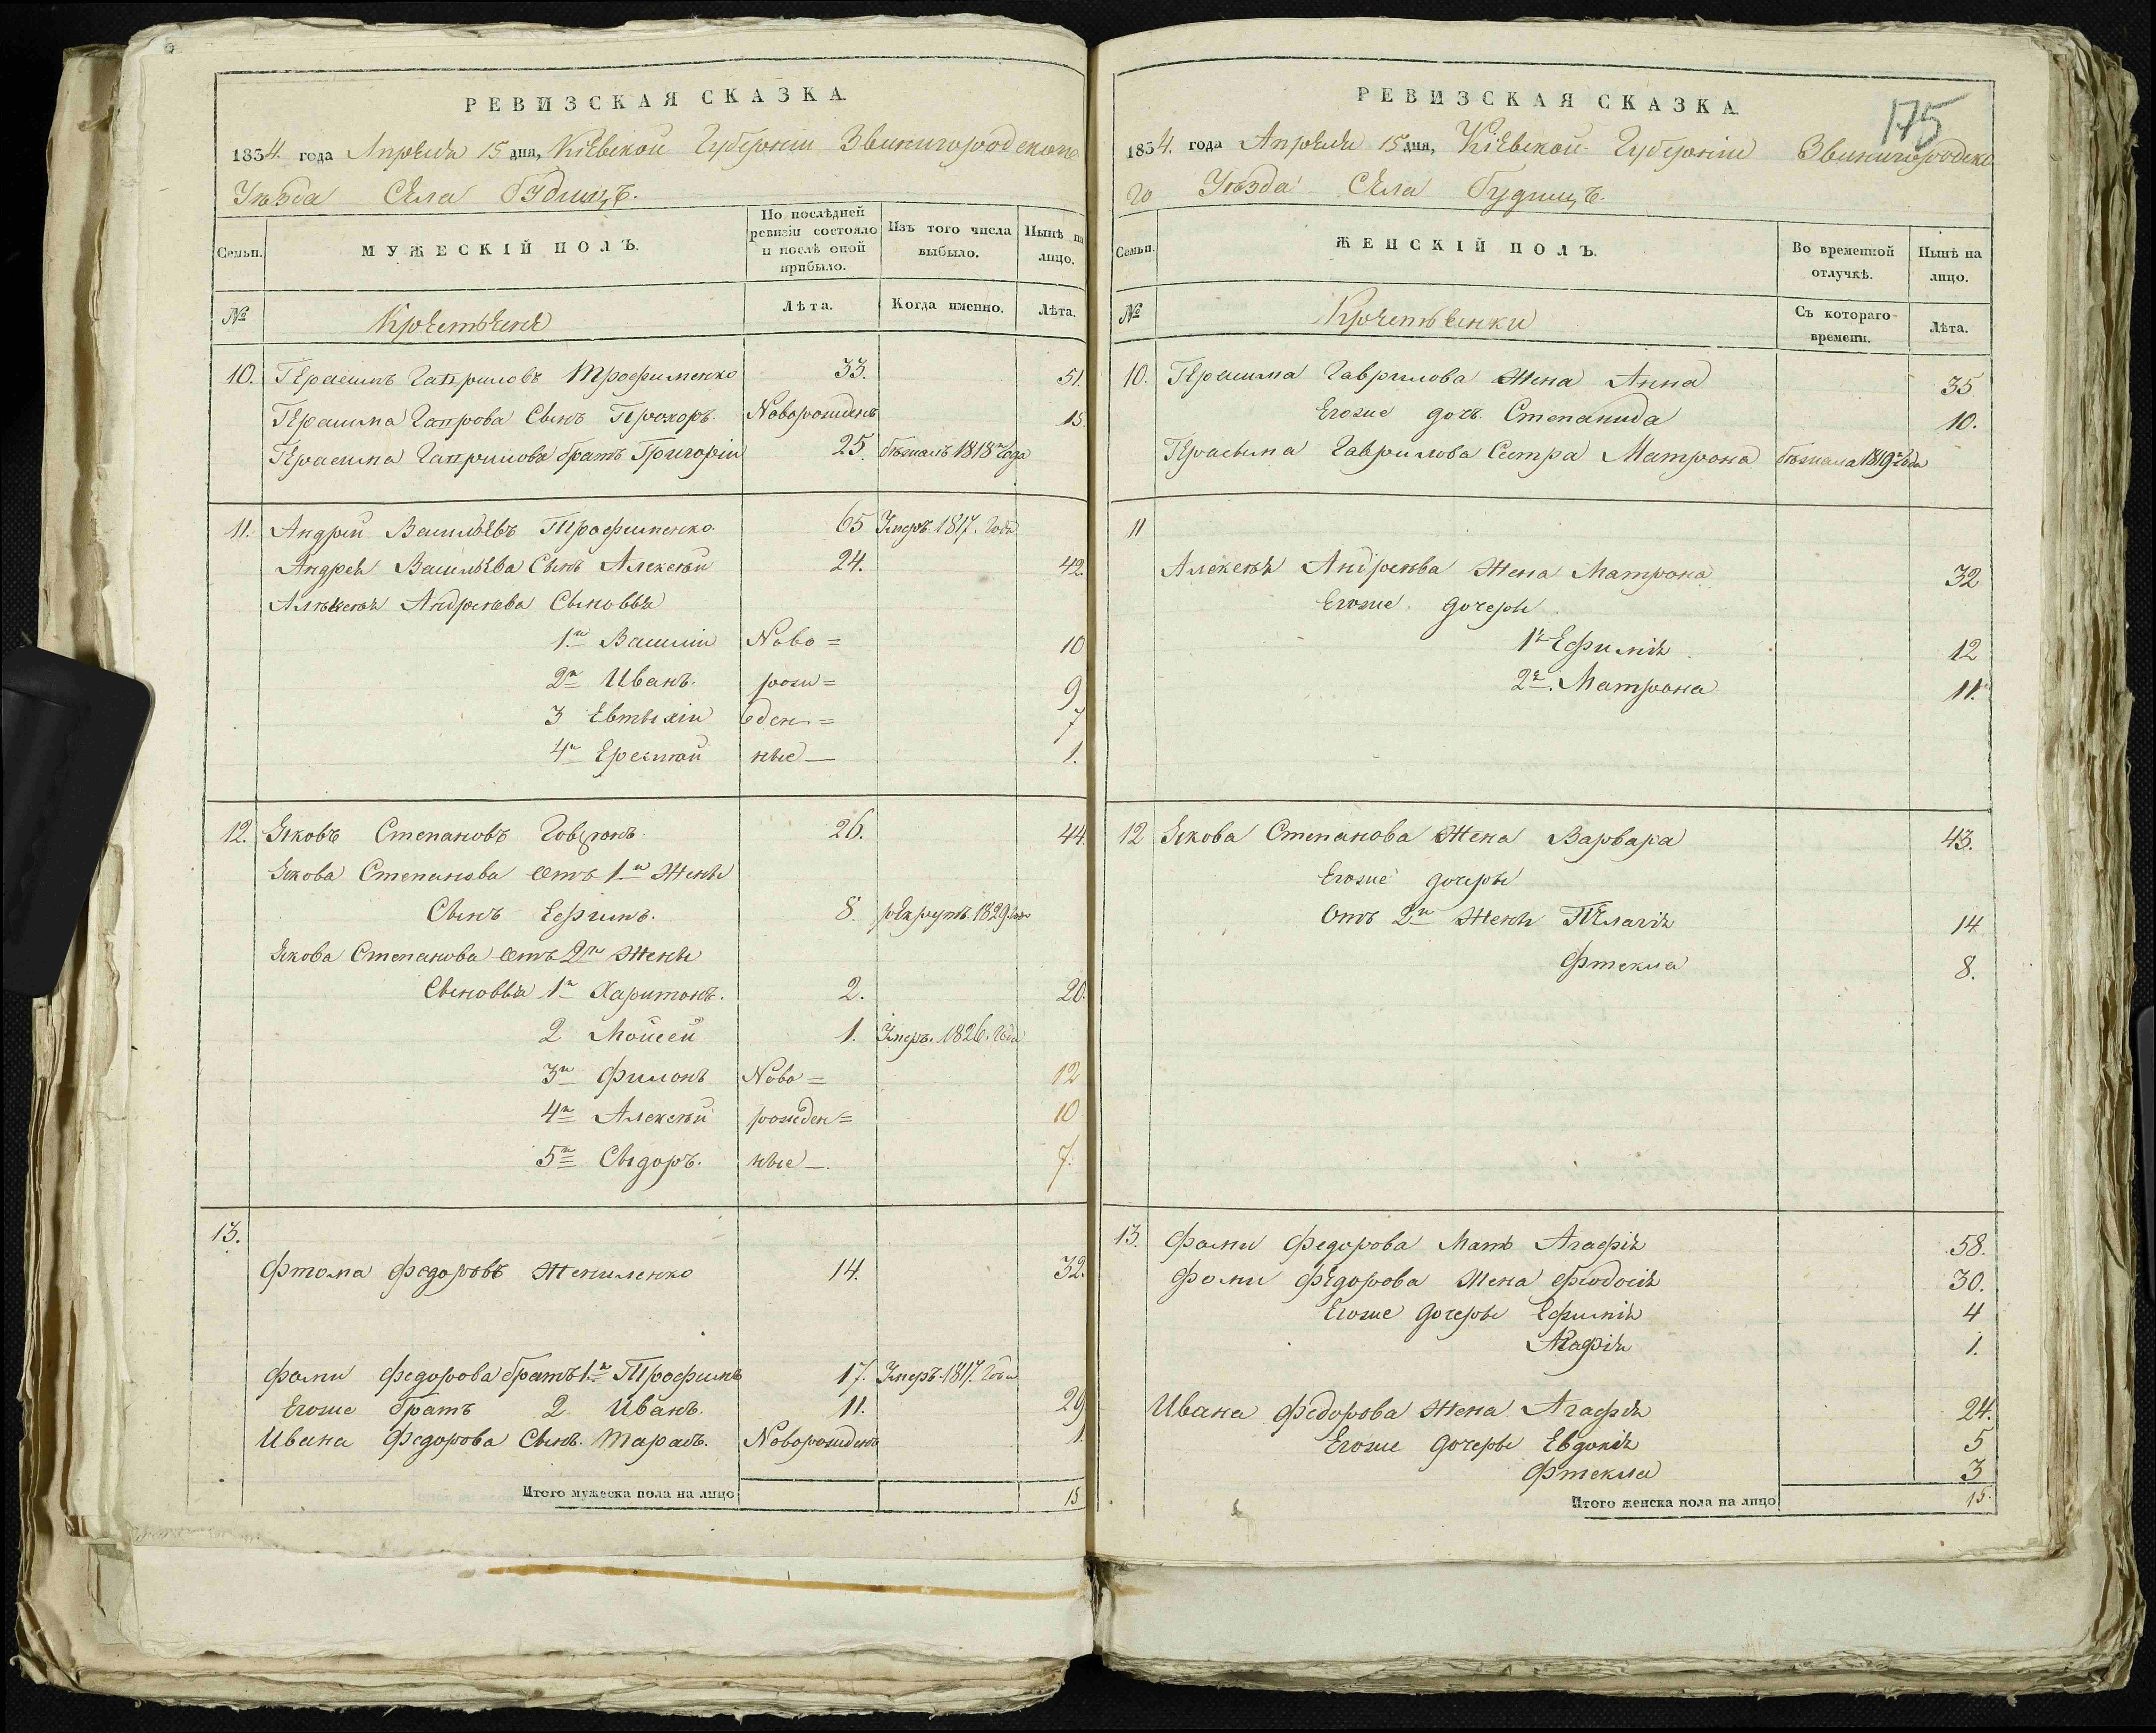 РЕВИЗСКАЯ СКАЗКА
1834. года Апреля 15 дня, Кіевской Губерніи Звинигородскаго
Уѣзда Села Будищъ.
Семьи.
МУЖЕСКІЙ ПОЛЪ.
По послѣдней ревизіи состояло и послѣ оной прибыло.
Изъ того числа выбыло.
Нынѣ на лицо.
№
Крестьяне
Лѣта.
Когда именно.
Лѣта.
10. Герасимъ Гавриловъ Трофименко 33. 51.
Герасима Гаврова Сынъ Прохоръ Новорожденъ 15.
Герасима Гаврилова братъ Григорій 25 бѣжалъ 1818 года
11. Андрій Васильевъ Трофименко. 65 Умеръ 1817. Года
Андрея Васильева Сынъ Алексѣй 24. 42.
Алѣксѣя Андреѣва Сыновья
1й Василій Ново= 10
2й Иванъ. рож= 9
3 Евтыхій ден= 7
4й Ереммій ные — 1.
12. Яковъ Степановъ 26. 44.
Якова Степанова отъ 1й Жены
Сынъ Ефимъ. 8. рекрутъ 1829 года
Якова Степанова отъ 2й Жены
Сыновья 1й Харитонъ. 2. 20.
2 Мойсей 1. Умеръ. 1826. Года
3й Филонъ Ново= 12
4й Алексѣй рожден= 10
5й Сыдоръ. ные —. 7.
13.
Фтома Федоровъ 14. 32.
Фомы Федорова братъ 1й Трофимъ 17. Умеръ 1817. Года
Егоже братъ 2 Иванъ. 11. 29
Ивана Федорова Сынъ. Тарасъ. Новорожденъ 1.
Итого мужеска пола на лицо 15
175
РЕВИЗСКАЯ СКАЗКА
1834. года Апреля 15 дня, Кіевской Губерніи Звинигородска
го Уѣзда Села Будищъ.
Семьи.
ЖЕНСКІЙ ПОЛЪ.
Во временной отлучкѣ.
Нынѣ на лицо.
№
Крестьянки
Съ котораго времени.
Лѣта.
10. Герасима Гаврилова Жена Анна 35
Егоже дочь Степанида 10.
Герасыма Гаврилова Сестра Матрона бѣжала 1819 года
11
Алексѣя Андреѣва Жена Матрона 32
Егоже дочери
1я Ефимія 12
2я. Матрона 11.
12 Якова Степанова Жена Варвара 43.
Егоже дочеры
Отъ 2й Жены Пелагія 14
Фтекла 8.
13. Фомы Федорова Мать Агафія 58.
Фомы Федорова Жена Феодосія 30.
Егоже дочеры Ефимія 4
Агафія 1.
Ивана Федорова Жена Агафія 24.
Егоже дочеры Евдокія 5
Фтекла 3
Итого женска пола на лицо 15.